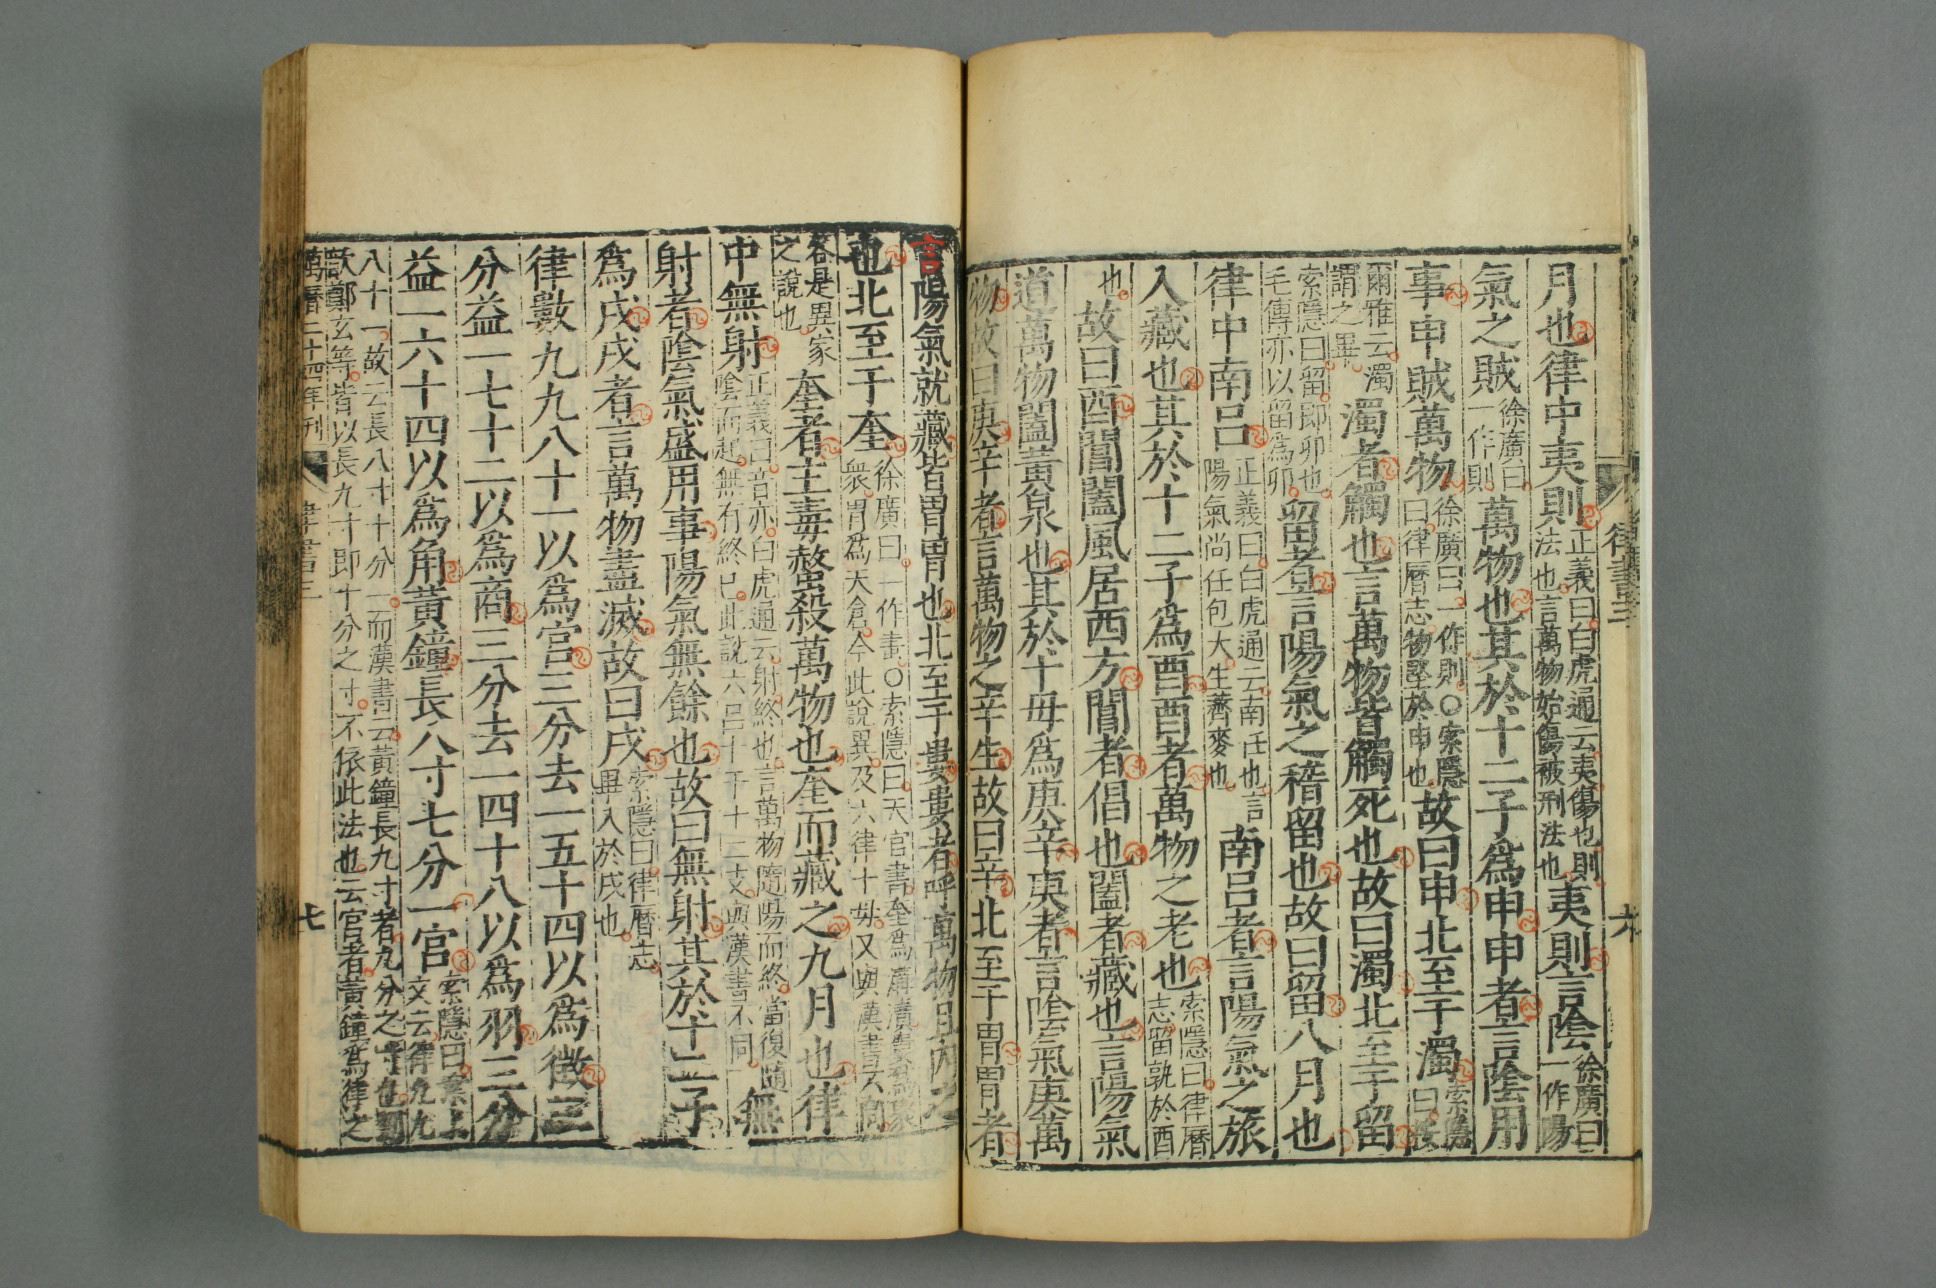 月也律中夷則正義曰白虎通云夷傷也則法也言萬物始傷被刑法也夷則言陰徐廣曰一作陽
氣之賊徐廣曰一作則萬物也其於十二子爲申申者言陰用
事申賊萬物徐廣曰一作則○索隱曰律曆志物堅於申也故曰申北至于濁索隱曰按
爾雅云濁謂之畢濁者觸也言萬物皆觸死也故曰濁北至于留
索隱曰留即卯也毛傳亦以留爲卯留者言陽氣之稽留也故曰留八月也
律中南呂正義曰白虎通云南任也言陽氣尚任包大生薺麥也南呂者言陽氣之旅
入藏也其於十二子爲酉酉者萬物之老也索隱曰律曆志留孰於酉
也故曰酉閶闔風居西方閶者倡也闔者藏也言陽氣
道萬物闔黃泉也其於十毋爲庚辛庚者言陰氣庚萬
物故曰庚辛者言萬物之辛生故曰辛北至于胃胃者
律書三
六
言陽氣就藏皆胃胃也北至于婁婁者呼萬物且內之
也北至于奎徐廣曰一作畫○索隱曰天官書奎爲溝瀆婁爲聚衆胃爲天倉今此說異及六律十母又與漢書不同
各是異家之說也奎者主毒螫殺萬物也奎而藏之九月也律
中無射正義曰音亦白虎通云射終也言萬物隨陽而終當復隨陰而起無有終已此說六呂十干十二支與漢書不同無
射者陰氣盛用事陽氣無餘也故曰無射其於十二子
爲戌戌者言萬物盡滅故曰戌索隱曰律曆志畢入於戌也
律數九九八十一以爲宮三分去一五十四以爲徵三
分益一七十二以爲商三分去一四十八以爲羽三分
益一六十四以爲角黃鐘長八寸七分一宮索隱曰案上文云律九九
八十一故云長八寸十分一而漢書云黃鐘長九寸者九分之寸也劉歆鄭玄等皆以長九寸即十分之寸不依此法也云宮者黃鐘爲律之
萬曆二十四年刊
律書三
七